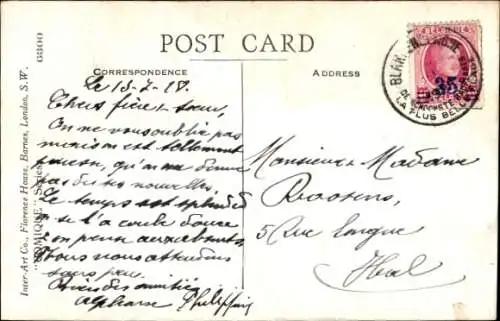 POST CARD
CORRESPONDENCE
ADDRESS
Inter-Art Co., Florence House, Barnes, London, S.W.
"COMIQUE" Series
6300
BLANKENBERGHE
LA PLUS BELLE
35
Le 15-7-28.
Chers frère & sœur,
On ne vous oublie pas
mais on est tellement
qu'on ne donne
pas de ses nouvelles.
Le temps est splendide
on se l'a coule douce
on pense aux absents.
Nous vous attendons
sans peu.
des amitiés
Alphonse Philippine
Monsieur & Madame
Roosens
5 Rue longue
Hal